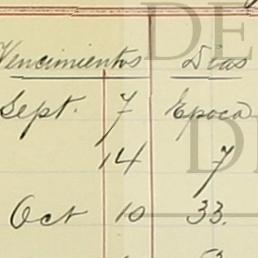 Vencimientos Dias
Sept. 7 Epoca
14 7
Oct 10 33.